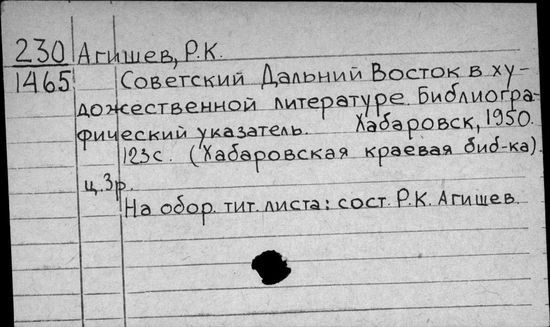 230 Агишев, Р.К.
1465 Советский Дальний Восток в ху-
дожественной литературе. Библиогра-
фический указатель. Хабаровск, 1950.
123с. (Хабаровская краевая биб-ка).
ц. 3р.
На обор. тит. листа: сост. Р.К. Агишев.